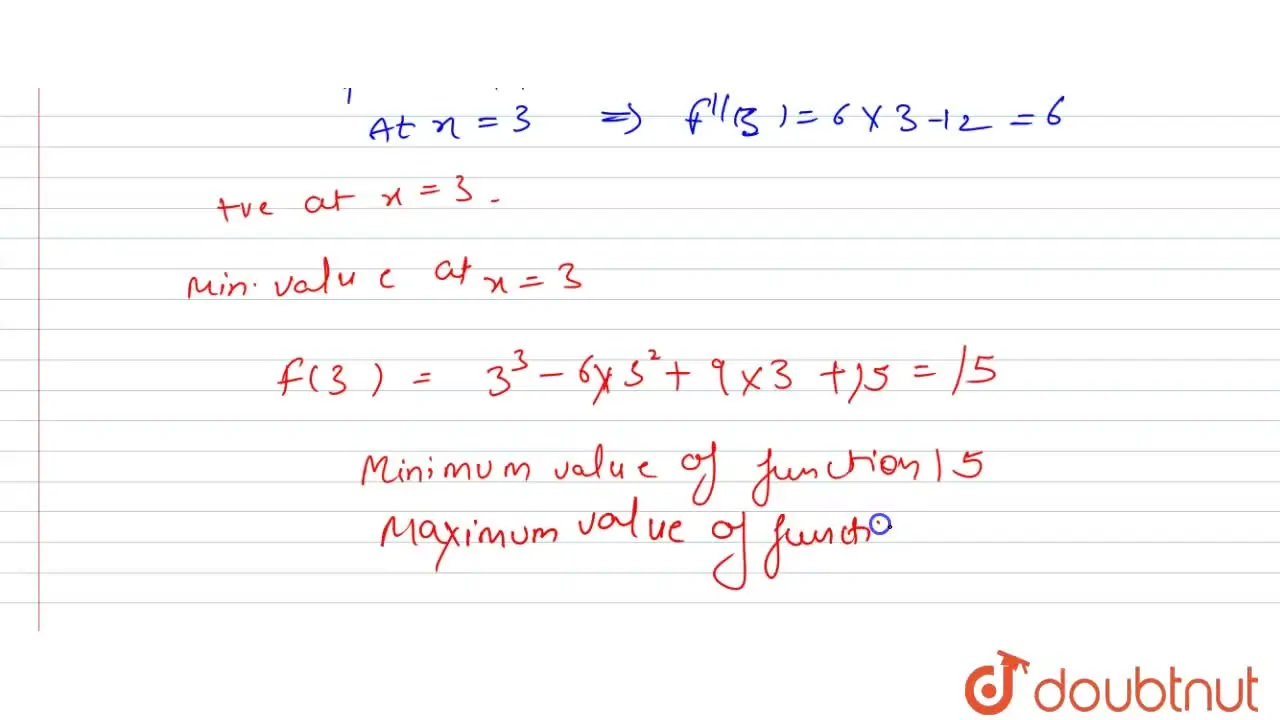 At x = 3 ⇒ f''(3) = 6 × 3 - 12 = 6
+ve at x = 3.
Min. value at x = 3
f(3) = 3³ - 6×3² + 9 × 3 + 15 = 15
Minimum value of function 15
Maximum value of functi
doubtnut